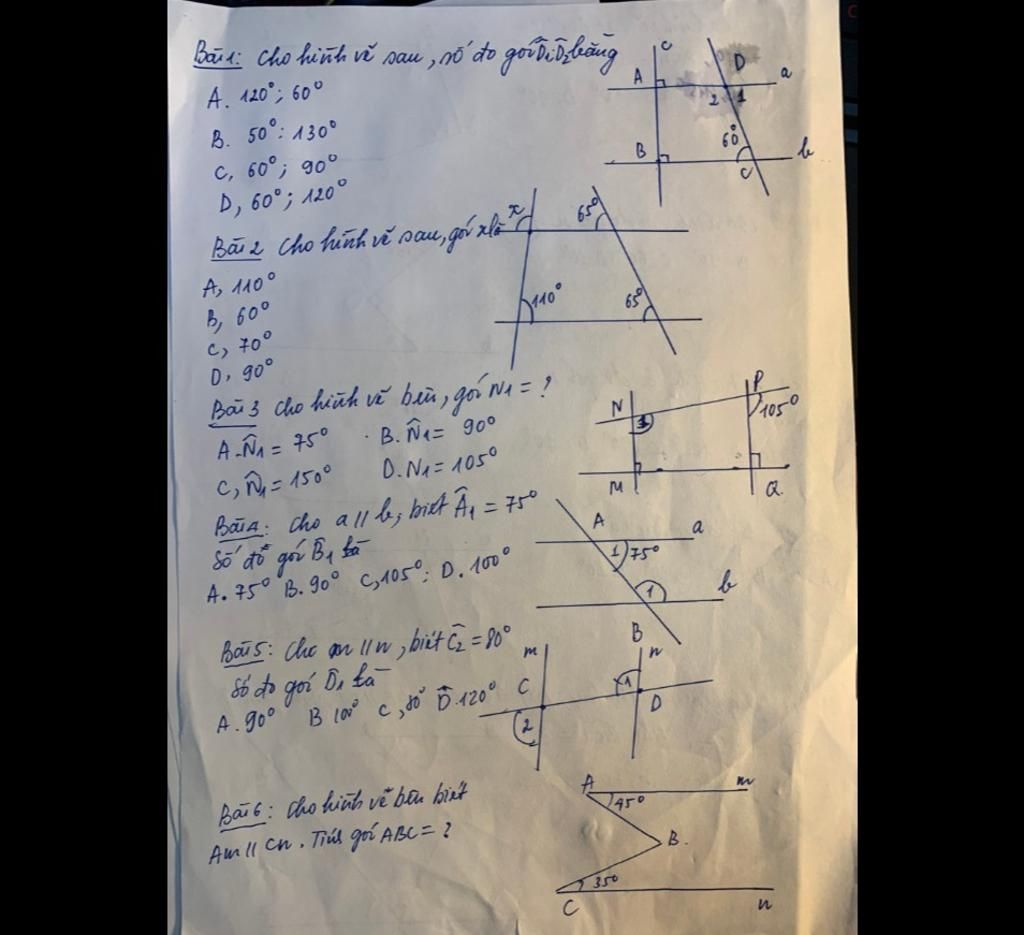 Bài 1: Cho hình vẽ sau, số đo góc D̂1 D̂2 bằng
A. 120°; 60°
B. 50°: 130°
C, 60°; 90°
D, 60°; 120°
c
A
D
a
2
1
B
60°
C
b
Bài 2 Cho hình vẽ sau, góc x là
A, 110°
B, 60°
C, 70°
D, 90°
x
65°
110°
65°
Bài 3 Cho hình vẽ bên, góc N1 = ?
A. N̂1 = 75° B. N̂1 = 90°
C, N̂1 = 150° D. N1 = 105°
N
1
P
105°
M
Q
Bài 4: Cho a // b, biết Â1 = 75°
Số đo góc B̂1 là
A. 75° B. 90° C, 105°; D. 100°
A
a
1
75°
1
b
B
Bài 5: Cho m // n, biết Ĉ2 = 80°
Số đo góc D̂1 là
A. 90° B 100° C, 80° D. 120°
m
n
C
1
2
D
Bài 6: Cho hình vẽ bên biết
Am // Cn. Tính góc ABC = ?
A
m
45°
B.
35°
C
n